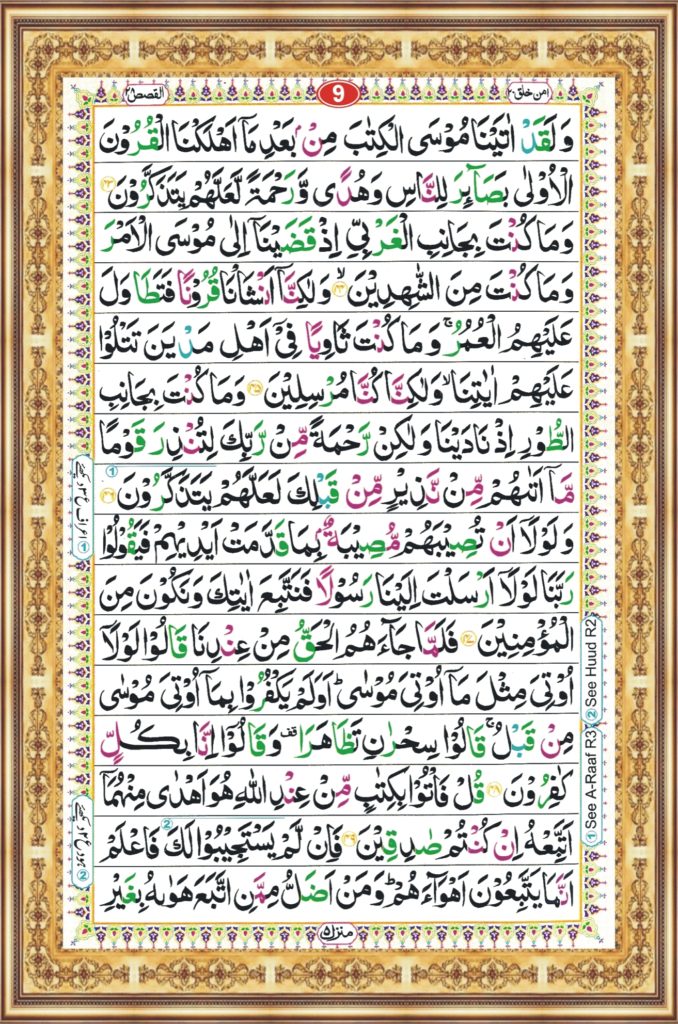 القصص ٢٨
9
امن خلق ٢٠
وَلَقَدْ اٰتَيْنَا مُوْسَى الْكِتٰبَ مِنْۢ بَعْدِ مَاۤ اَهْلَكْنَا الْقُرُوْنَ
الْاُوْلٰى بَصَآئِرَ لِلنَّاسِ وَهُدًى وَّرَحْمَةً لَّعَلَّهُمْ يَتَذَكَّرُوْنَ ﴿۴۳﴾
وَمَا كُنْتَ بِجَانِبِ الْغَرْبِيِّ اِذْ قَضَيْنَاۤ اِلٰى مُوْسَى الْاَمْرَ
وَمَا كُنْتَ مِنَ الشّٰهِدِيْنَ ﴿۴۴﴾ۙ وَلٰكِنَّاۤ اَنْشَاْنَا قُرُوْنًا فَتَطَاوَلَ
عَلَيْهِمُ الْعُمُرُۚ وَمَا كُنْتَ ثَاوِيًا فِيْۤ اَهْلِ مَدْيَنَ تَتْلُوْا
عَلَيْهِمْ اٰيٰتِنَاۙ وَلٰكِنَّا كُنَّا مُرْسِلِيْنَ ﴿۴۵﴾ وَمَا كُنْتَ بِجَانِبِ
الطُّوْرِ اِذْ نَادَيْنَا وَلٰكِنْ رَّحْمَةً مِّنْ رَّبِّكَ لِتُنْذِرَ قَوْمًا
مَّاۤ اَتٰىهُمْ مِّنْ نَّذِيْرٍ مِّنْ قَبْلِكَ لَعَلَّهُمْ يَتَذَكَّرُوْنَ ﴿۴۶﴾
وَلَوْلَاۤ اَنْ تُصِيْبَهُمْ مُّصِيْبَةٌۢ بِمَا قَدَّمَتْ اَيْدِيْهِمْ فَيَقُوْلُوْا
رَبَّنَا لَوْلَاۤ اَرْسَلْتَ اِلَيْنَا رَسُوْلًا فَنَتَّبِعَ اٰيٰتِكَ وَنَكُوْنَ مِنَ
الْمُؤْمِنِيْنَ ﴿۴۷﴾ فَلَمَّا جَآءَهُمُ الْحَقُّ مِنْ عِنْدِنَا قَالُوْا لَوْلَاۤ
اُوْتِيَ مِثْلَ مَاۤ اُوْتِيَ مُوْسٰىؕ اَوَلَمْ يَكْفُرُوْا بِمَاۤ اُوْتِيَ مُوْسٰى
مِنْ قَبْلُۚ قَالُوْا سِحْرٰنِ تَظَاهَرَا۫ قف وَقَالُوْۤا اِنَّا بِكُلٍّ
كٰفِرُوْنَ ﴿۴۸﴾ قُلْ فَاْتُوْا بِكِتٰبٍ مِّنْ عِنْدِ اللّٰهِ هُوَ اَهْدٰى مِنْهُمَاۤ
اَتَّبِعْهُ اِنْ كُنْتُمْ صٰدِقِيْنَ ﴿۴۹﴾ فَاِنْ لَّمْ يَسْتَجِيْبُوْا لَكَ فَاعْلَمْ
اَنَّمَا يَتَّبِعُوْنَ اَهْوَآءَهُمْؕ وَمَنْ اَضَلُّ مِمَّنِ اتَّبَعَ هَوٰىهُ بِغَيْرِ
منزل ۵
① اعراف ع ۳ دیکھیے
② ہود ع ۲ دیکھیے
① See A-Raaf R3 ② See Huud R2